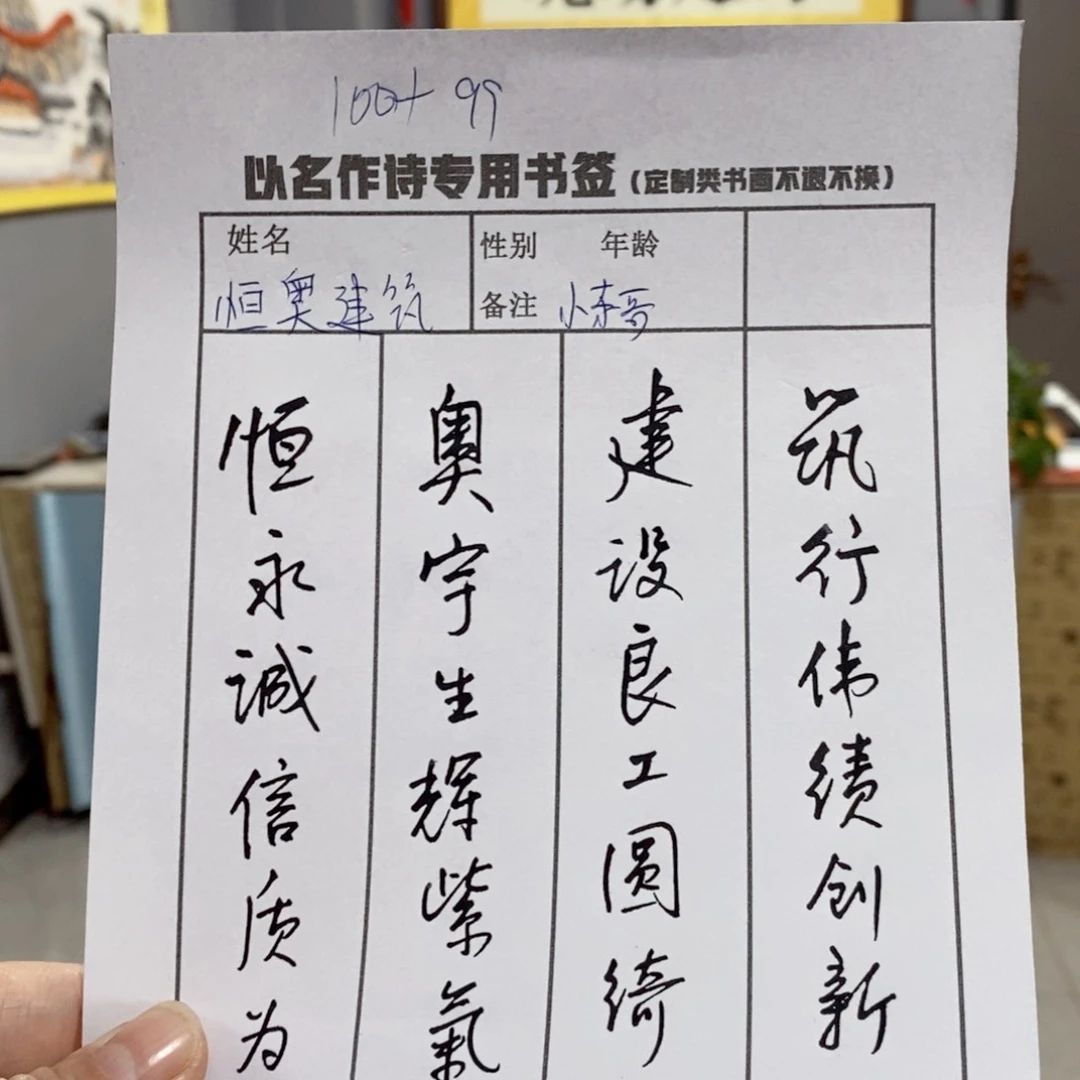 100+ 99
以名作诗专用书签（定制类书画不退不换）
姓名
恒奥建筑
性别 年龄
备注
恒永诚信质为
奥宇生辉紫氣
建设良工圆绮
筑行伟绩创新